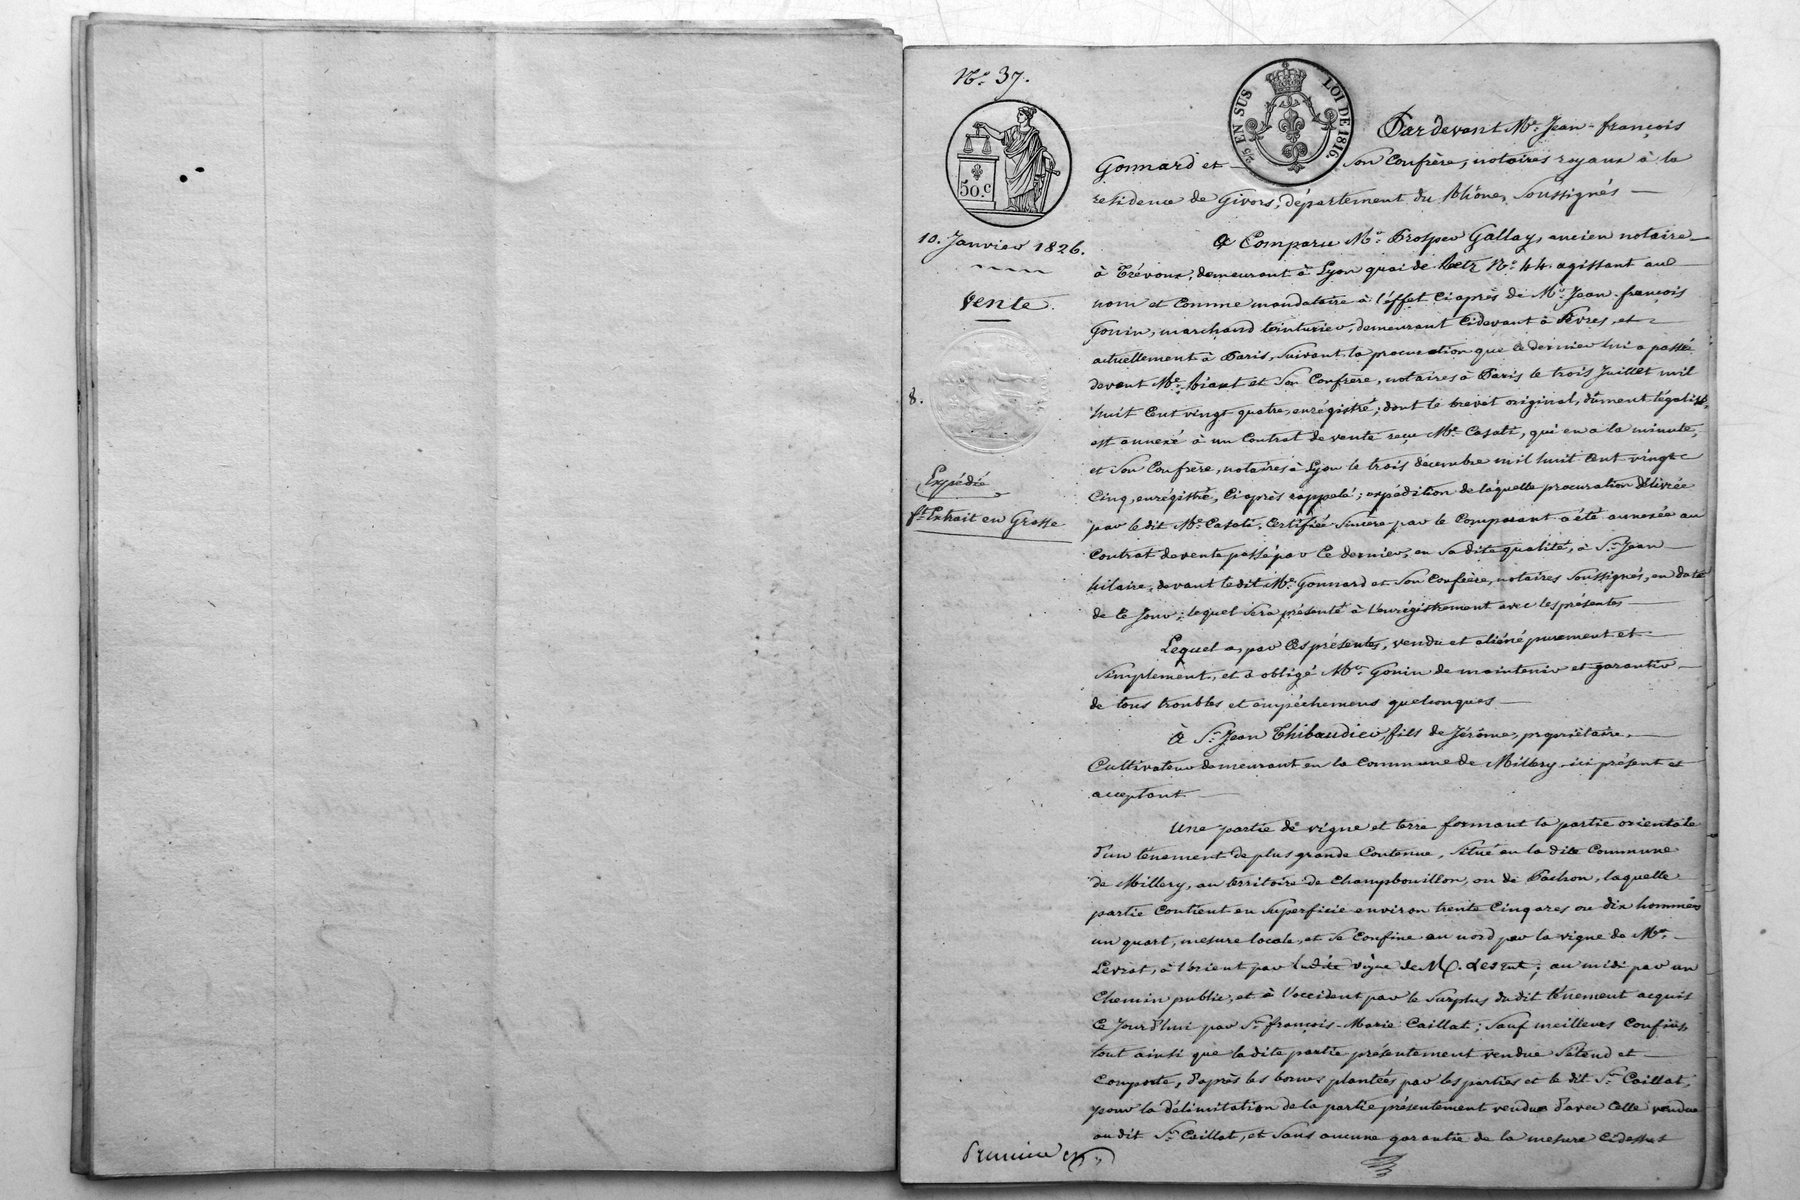 N.º 37.
50.c
25 EN SUS LOI DE 1816.
10. Janvier 1826.
Vente.
8.
Expédié
f.t Extrait en Grosse
Pardevant M.e Jean-françois
Gonnard et son Confrère, notaires royaux à la
résidence de Givors, département du Rhône, soussignés
A Comparu M.r Prosper Gallay, ancien notaire
à Trévoux, demeurant à Lyon quai de Retz N.º 44. agissant au
nom et comme mandataire à l'effet ci après de M.r Jean-françois
Gonin, marchand teinturier, demeurant cidevant à Sèvres, et
actuellement à Paris, suivant la procuration que ce dernier lui a passée
devant M.e et son Confrère, notaires à Paris le trois Juillet mil
huit cent vingt quatre, enrégistré; dont le brevet original, dûment légalisé,
est annexé à un contrat de vente reçu M.e Casati, qui en a la minute,
et son Confrère, notaires à Lyon le trois décembre mil huit cent vingt
cinq, enrégistré, ci après rappelé; expédition de laquelle procuration délivrée
par le dit M.e Casati, certifiée sincère par le comparant a été annexée au
contrat de vente passé par ce dernier, en sa dite qualité, à S.t Jean
hilaire, devant le dit M.e Gonnard et son confrère, notaires soussignés, en date
de ce jour; lequel sera présenté à l'enrégistrement avec les présentes
Lequel a, par ces présentes, vendu et aliéné purement et
simplement, et a obligé M.r Gonin de maintenir et garantir
de tous troubles et empéchemens quelconques
A S.r Jean Thibaudier, fils de Jérôme, propriétaire,
Cultivateur demeurant en la commune de Millery, ici présent et
acceptant
Une partie de vigne et terre formant la partie orientale
d'un ténement de plus grande contenue, situé en la dite commune
de Millery, au territoire de Champbouillon, ou de Pachon, laquelle
partie contient en superficie environ trente cinq ares ou dix hommées
un quart, mesure locale, et se confine au nord par la vigne de M.r
Levrat, à l'orient par ladite vigne de M. ; au midi par un
chemin public, et à l'occident par le surplus dudit ténement acquis
ce jourd'hui par S.r françois-Marie Caillat; sauf meilleurs confins,
tout ainsi que la dite partie présentement vendue s'étend et
comporte, d'après les bornes plantées par les parties et le dit S.r Caillat,
pour la délimitation de la partie présentement vendue d'avec celle vendue
au dit S.r Caillat, et sans aucune garantie de la mesure cidessus